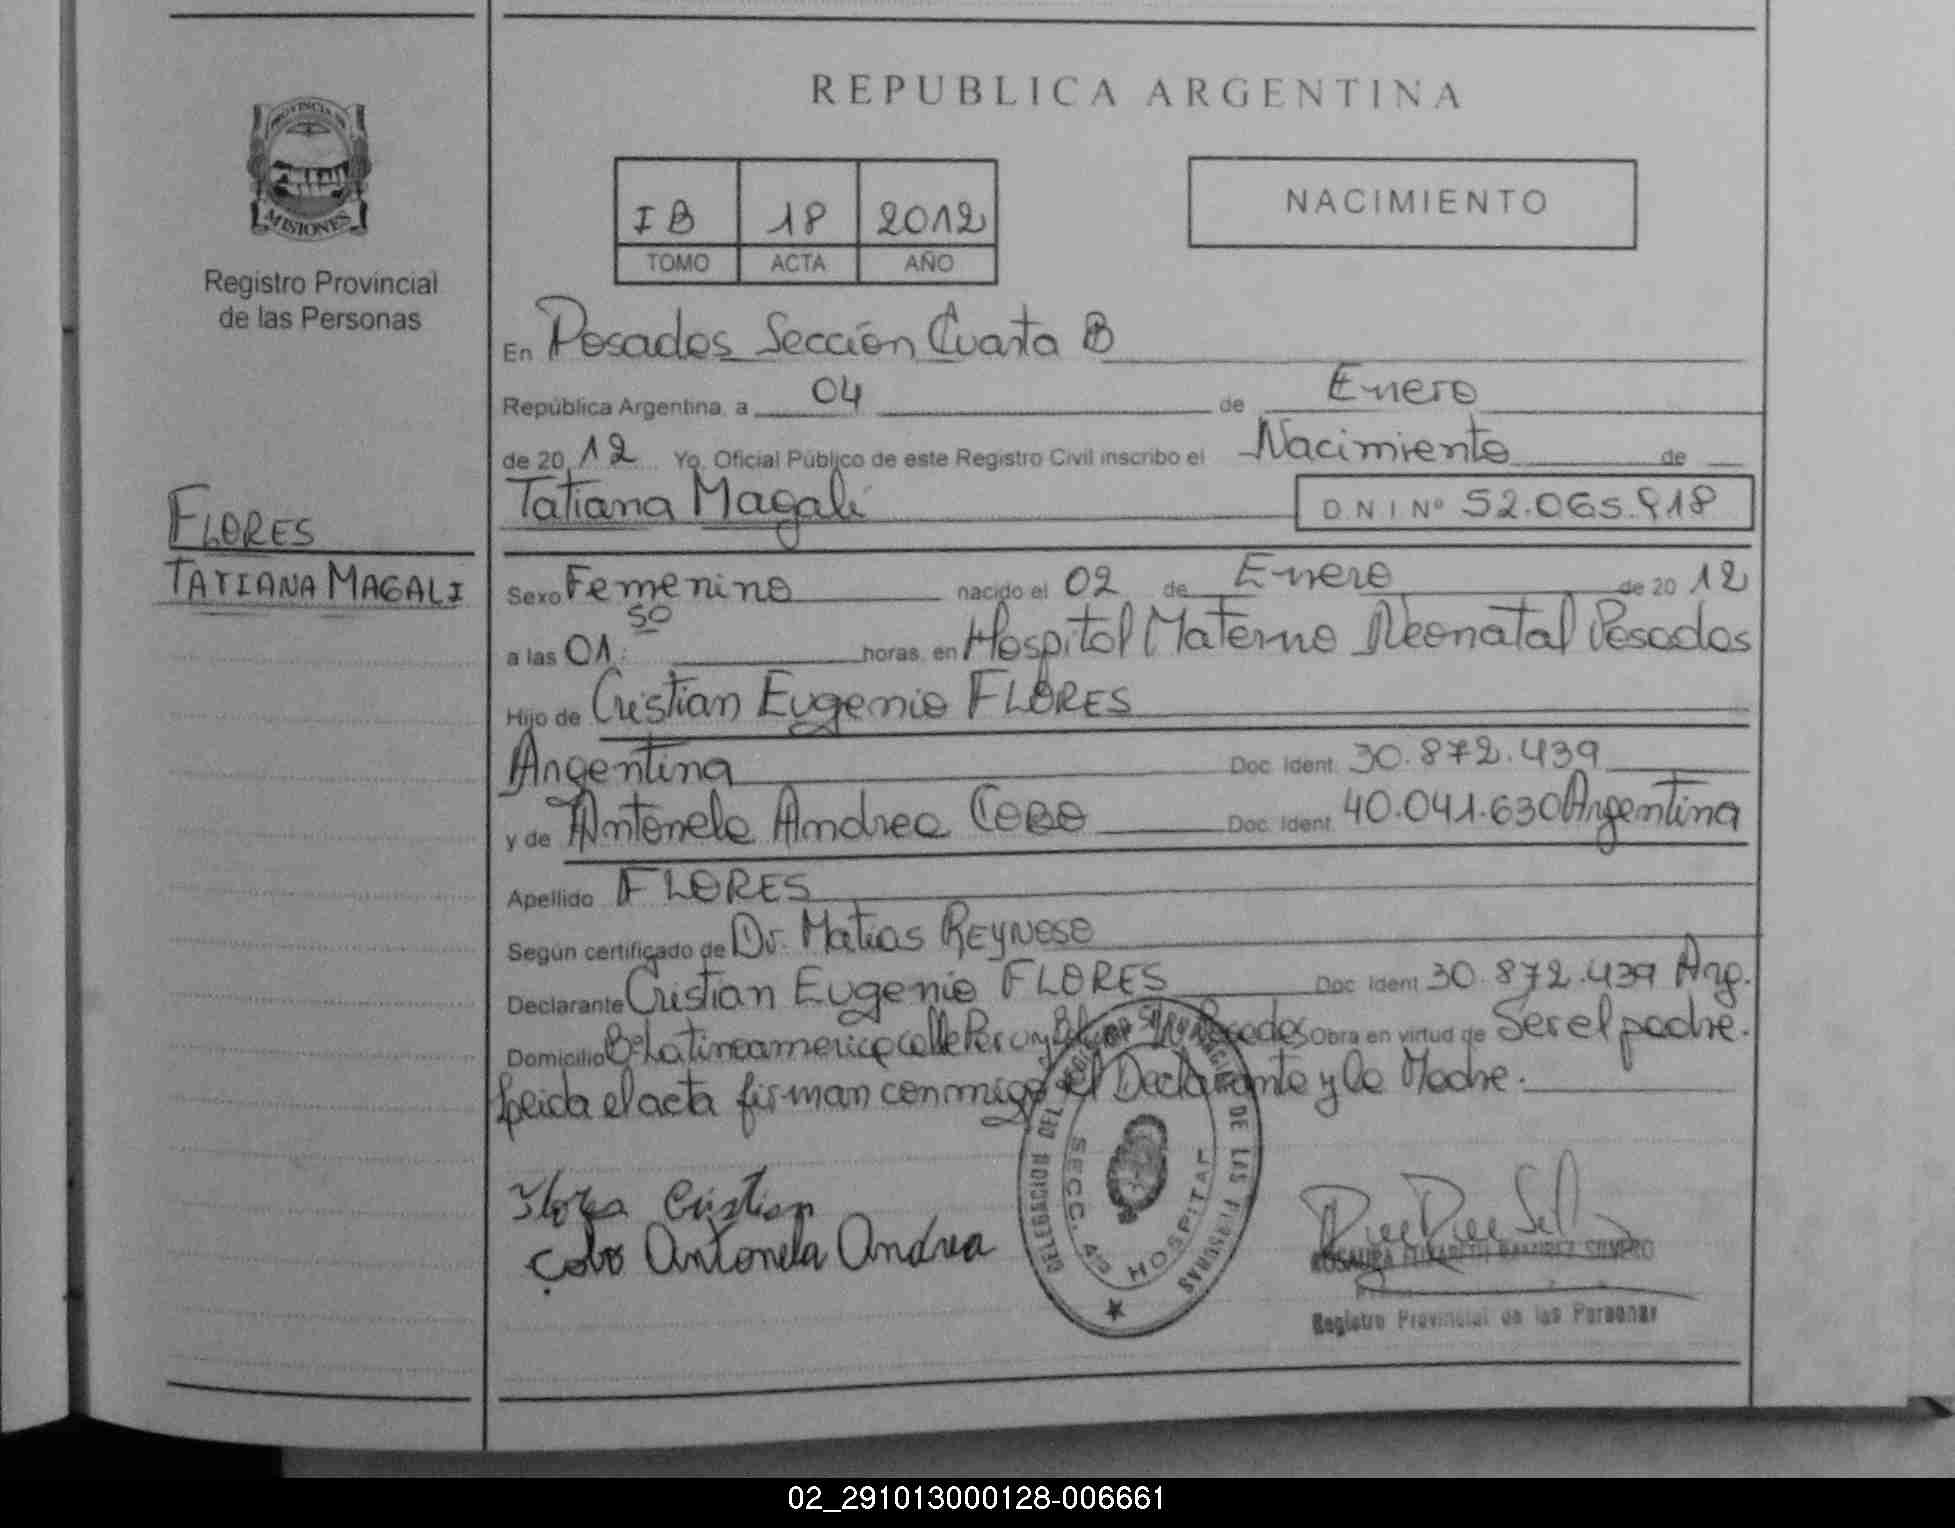 REPUBLICA ARGENTINA
PROVINCIA DE
MISIONES
Registro Provincial
de las Personas
I B 18 2012
TOMO ACTA AÑO
NACIMIENTO
En Posadas Sección Cuarta B
República Argentina, a 04 de Enero
de 20 12 Yo, Oficial Público de este Registro Civil inscribo el Nacimiento de
Tatiana Magalí D N I Nº 52.065.918
FLORES
TATIANA MAGALI
Sexo Femenino nacido el 02 de Enero de 20 12
a las 01:50 horas, en Hospital Materno Neonatal Posadas
Hijo de Cristian Eugenio FLORES
Argentina Doc. Ident. 30.872.439
y de Antonela Andrea COBO Doc. Ident. 40.041.630 Argentina
Apellido FLORES
Según certificado de Dr. Matias REYNOSO
Declarante Cristian Eugenio FLORES Doc. Ident 30.872.439 Arg.
Domicilio Bº Latinoamerica calle Posadas Obra en virtud de Ser el padre.
Leida el acta firman conmigo el Declarante y la Madre.
Flores Cristian
Cobo Antonela Andrea
DELEGACION DEL DE LAS PERSONAS
SECC. 4º HOSPITAL
ROSAURA ELIZABETH RAMIREZ
Registro Provincial de las Personas
02_291013000128-006661